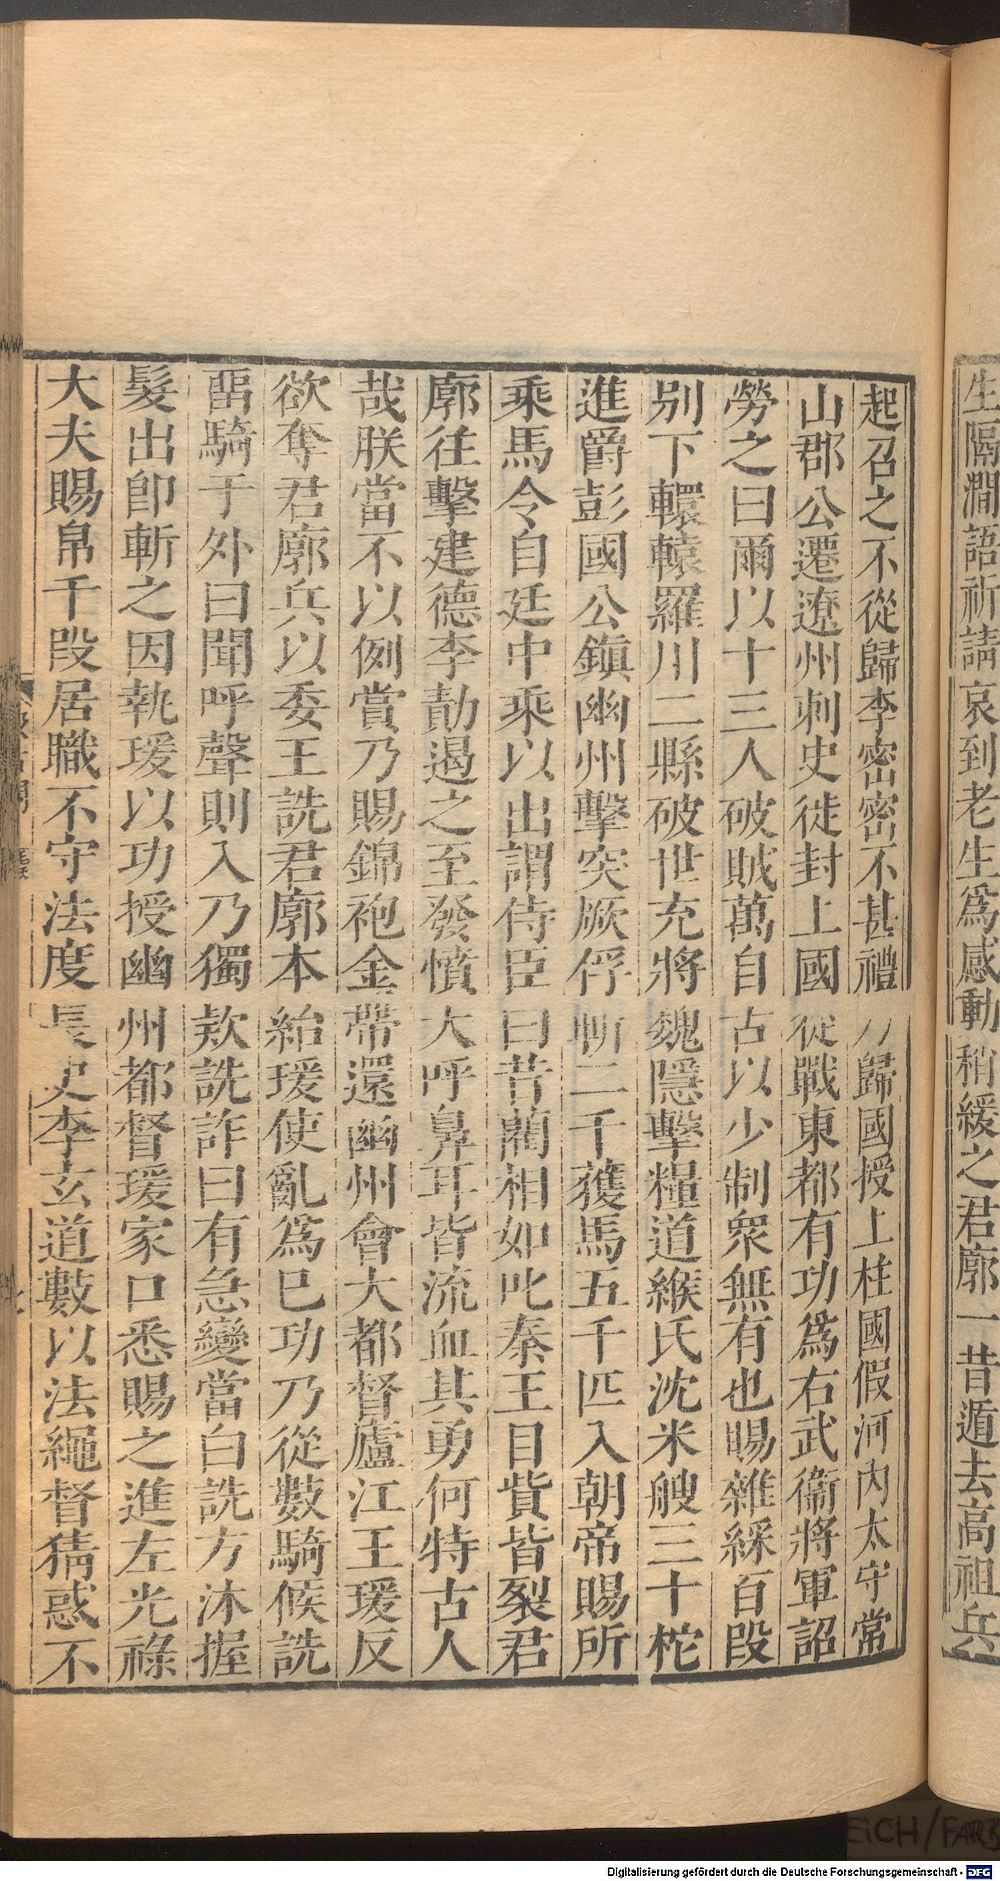 生隔澗語祈請哀到老生爲感動稍緩之君廓一昔遁去高祖兵
起召之不從歸李密密不甚禮乃歸國授上柱國假河內太守常
山郡公遷遼州刺史徙封上國從戰東都有功爲右武衞將軍詔
勞之曰爾以十三人破賊萬自古以少制衆無有也賜雜綵百段
別下轘轅羅川二縣破世充將魏隱擊糧道緱氏沈米艘三十柁
進爵彭國公鎭幽州擊突厥俘斬二千獲馬五千匹入朝帝賜所
乘馬令自廷中乘以出謂侍臣曰昔藺相如叱秦王目眥皆裂君
廓往擊建德李勣遏之至發憤大呼鼻耳皆流血其勇何特古人
哉朕當不以例賞乃賜錦袍金帶還幽州會大都督廬江王瑗反
欲奪君廓兵以委王詵君廓本紿瑗使亂爲已功乃從數騎候詵
畱騎于外曰聞呼聲則入乃獨款詵詐曰有急變當白詵方沐握
髮出卽斬之因執瑗以功授幽州都督瑗家口悉賜之進左光祿
大夫賜帛千段居職不守法度長史李玄道數以法繩督猜惑不
Digitalisierung gefördert durch die Deutsche Forschungsgemeinschaft - DFG